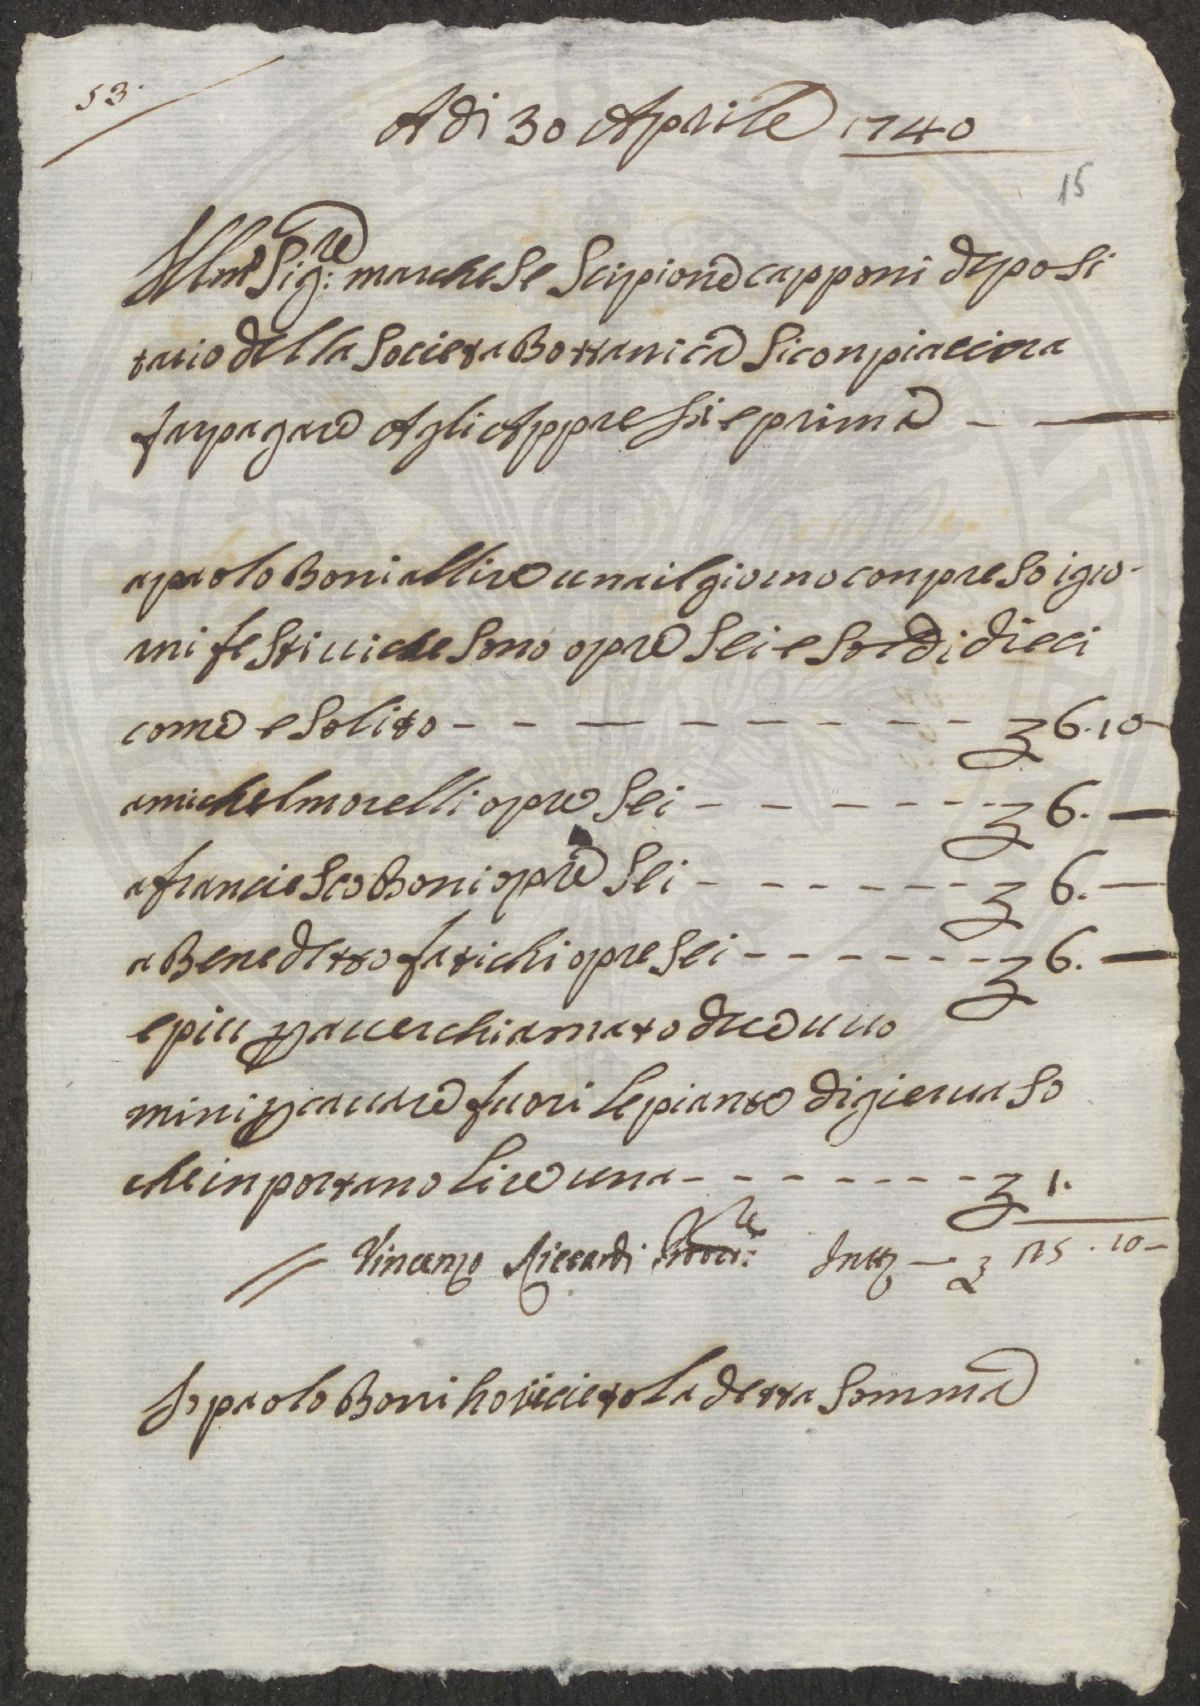 53.
Adi 30 Aprile 1740
15
Illmo Sig:re marchese Scipione capponi deposi
tario della Societa Bottanica Si conpiacera
far pagare Agli Appressi e prima
a paolo Boni allire una il giorno conpreso i gior
ni festivi che sono opre Sei e Soldi dieci
come e solito 6.10
a michel morelli opre Sei 6.
a franciesco Boni opre Sei 6.
a Benedetto fatichi opre Sei 6.
e piu p aver chiamato due uuo
mini p cavare fuori le piante di gieruaso
che inportano lire una 1.
Vincenzo Riccardi 25.10
Io paolo Boni ho riceieuto la detta Somma